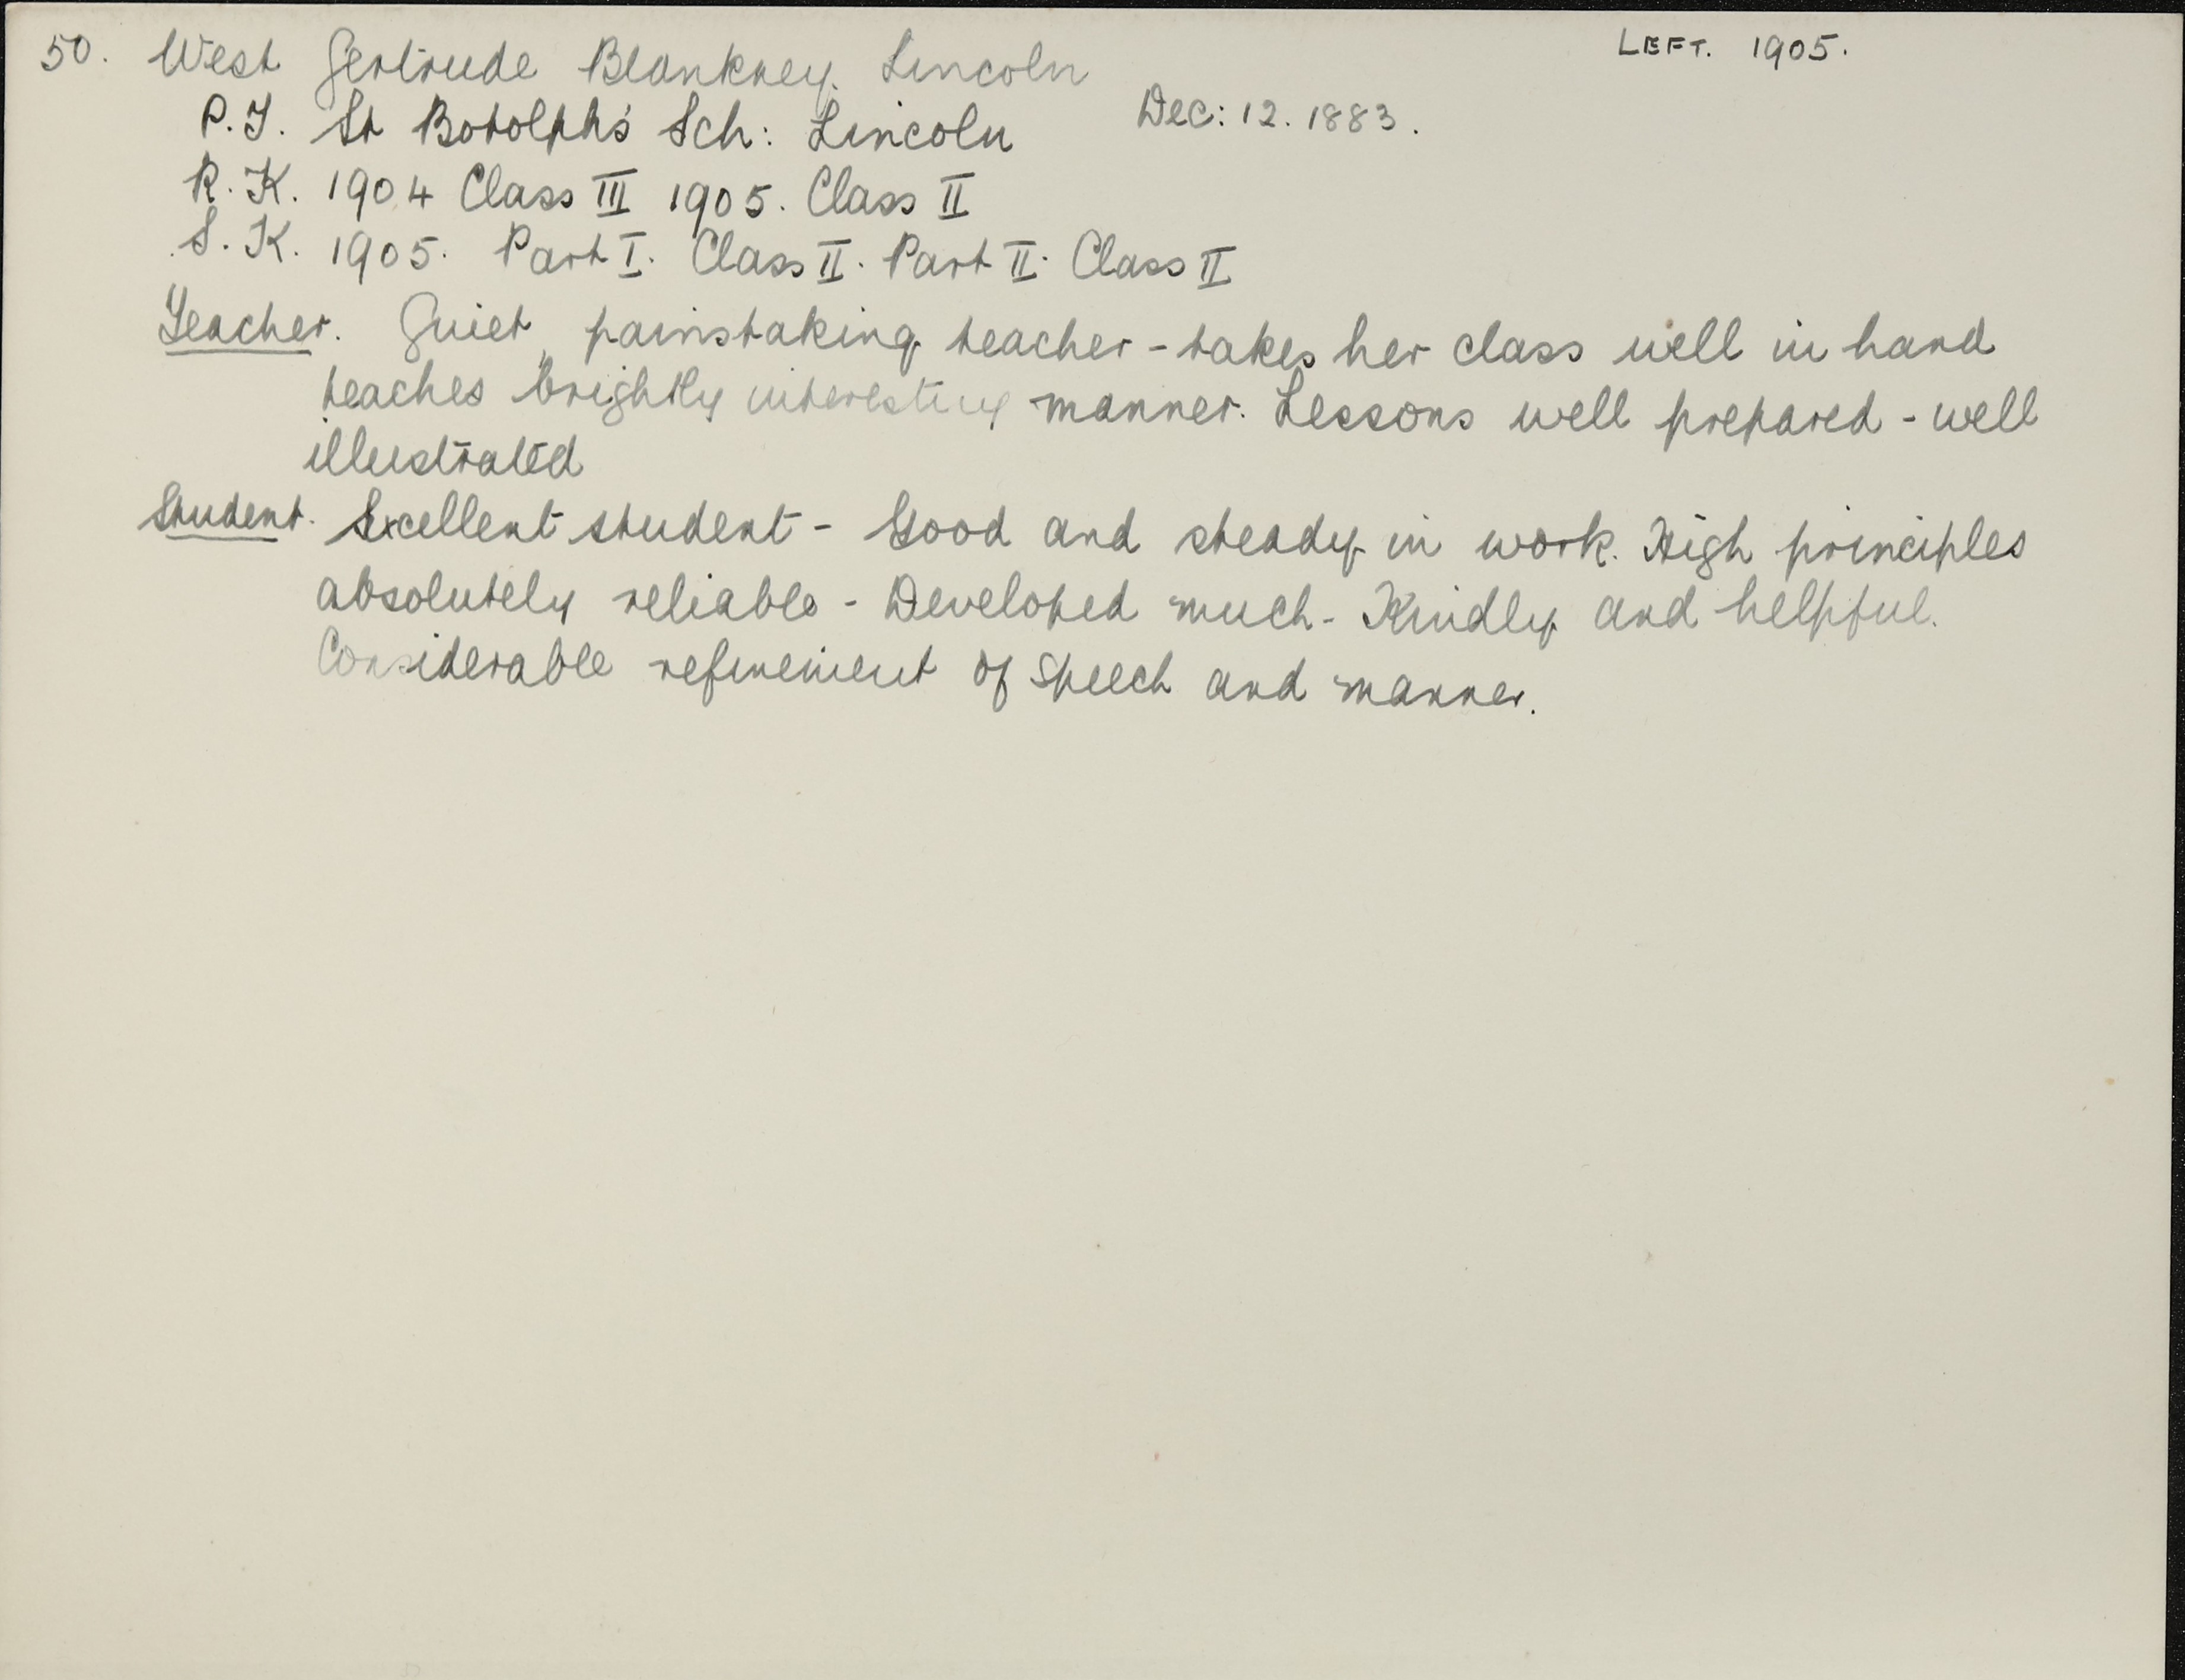 50. West Gertrude Blankney. Lincoln LEFT. 1905.
P.T. St Botolph's Sch: Lincoln Dec: 12. 1883.
R.K. 1904 Class III 1905. Class II
S.K. 1905. Part I. Class II. Part II. Class II
Teacher. Quiet, painstaking teacher - takes her class well in hand
teaches brightly interesting manner. Lessons well prepared - well
illustrated
Student. Excellent student - Good and steady in work. High principles
absolutely reliable - Developed much - Kindly and helpful.
Considerable refinement of speech and manner.